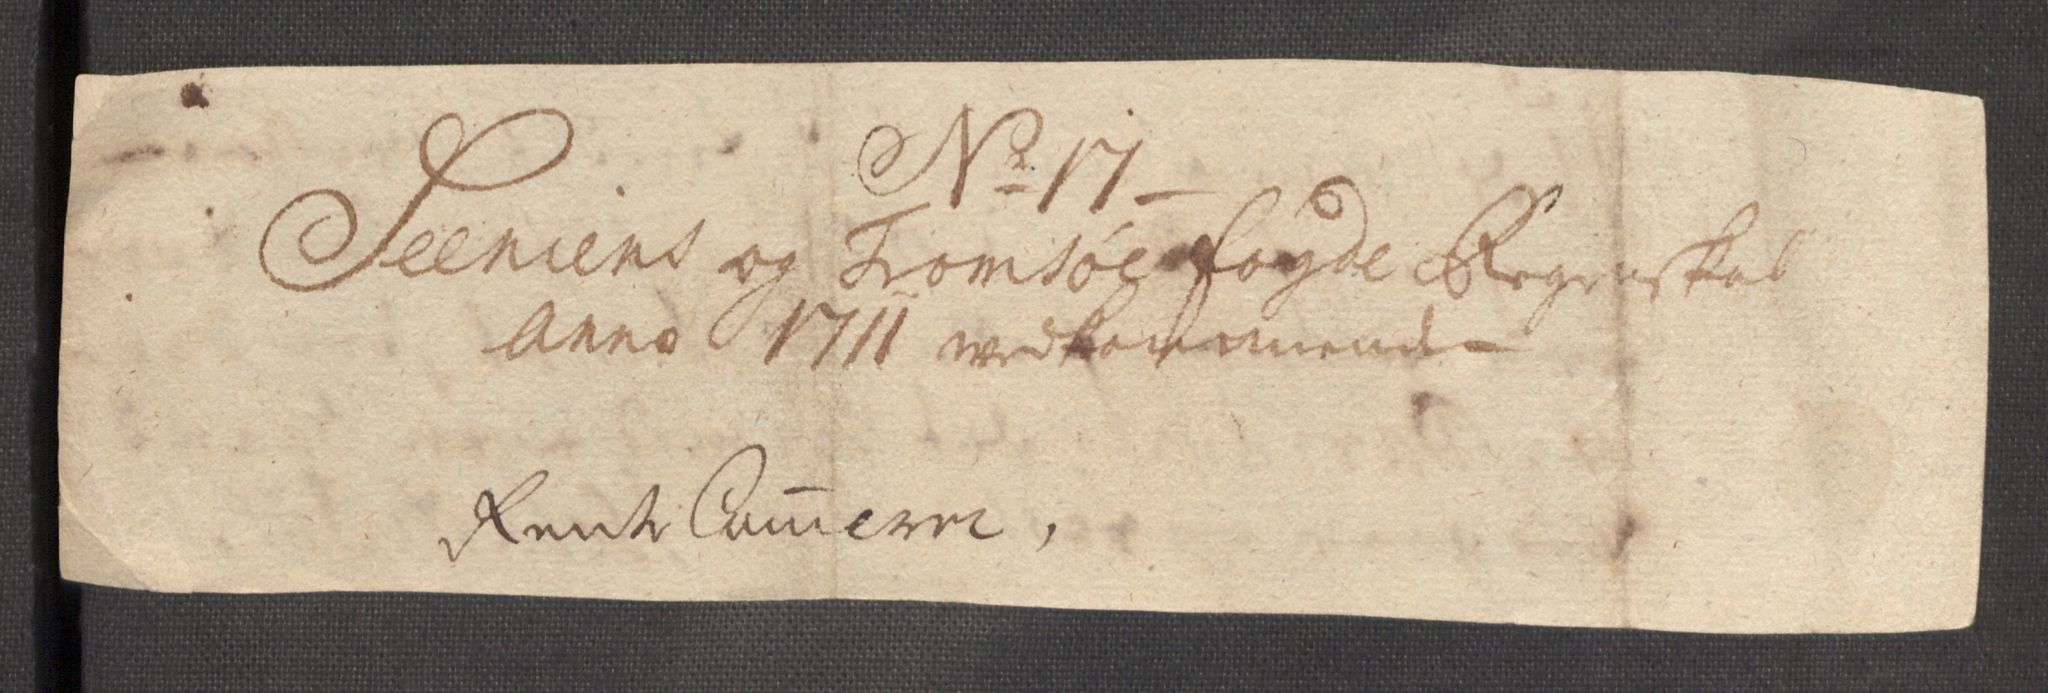 No 17
Seeniens og Tromsøe fogde Regenskab
Anno 1711 vedkommende
Rente Cammeret,